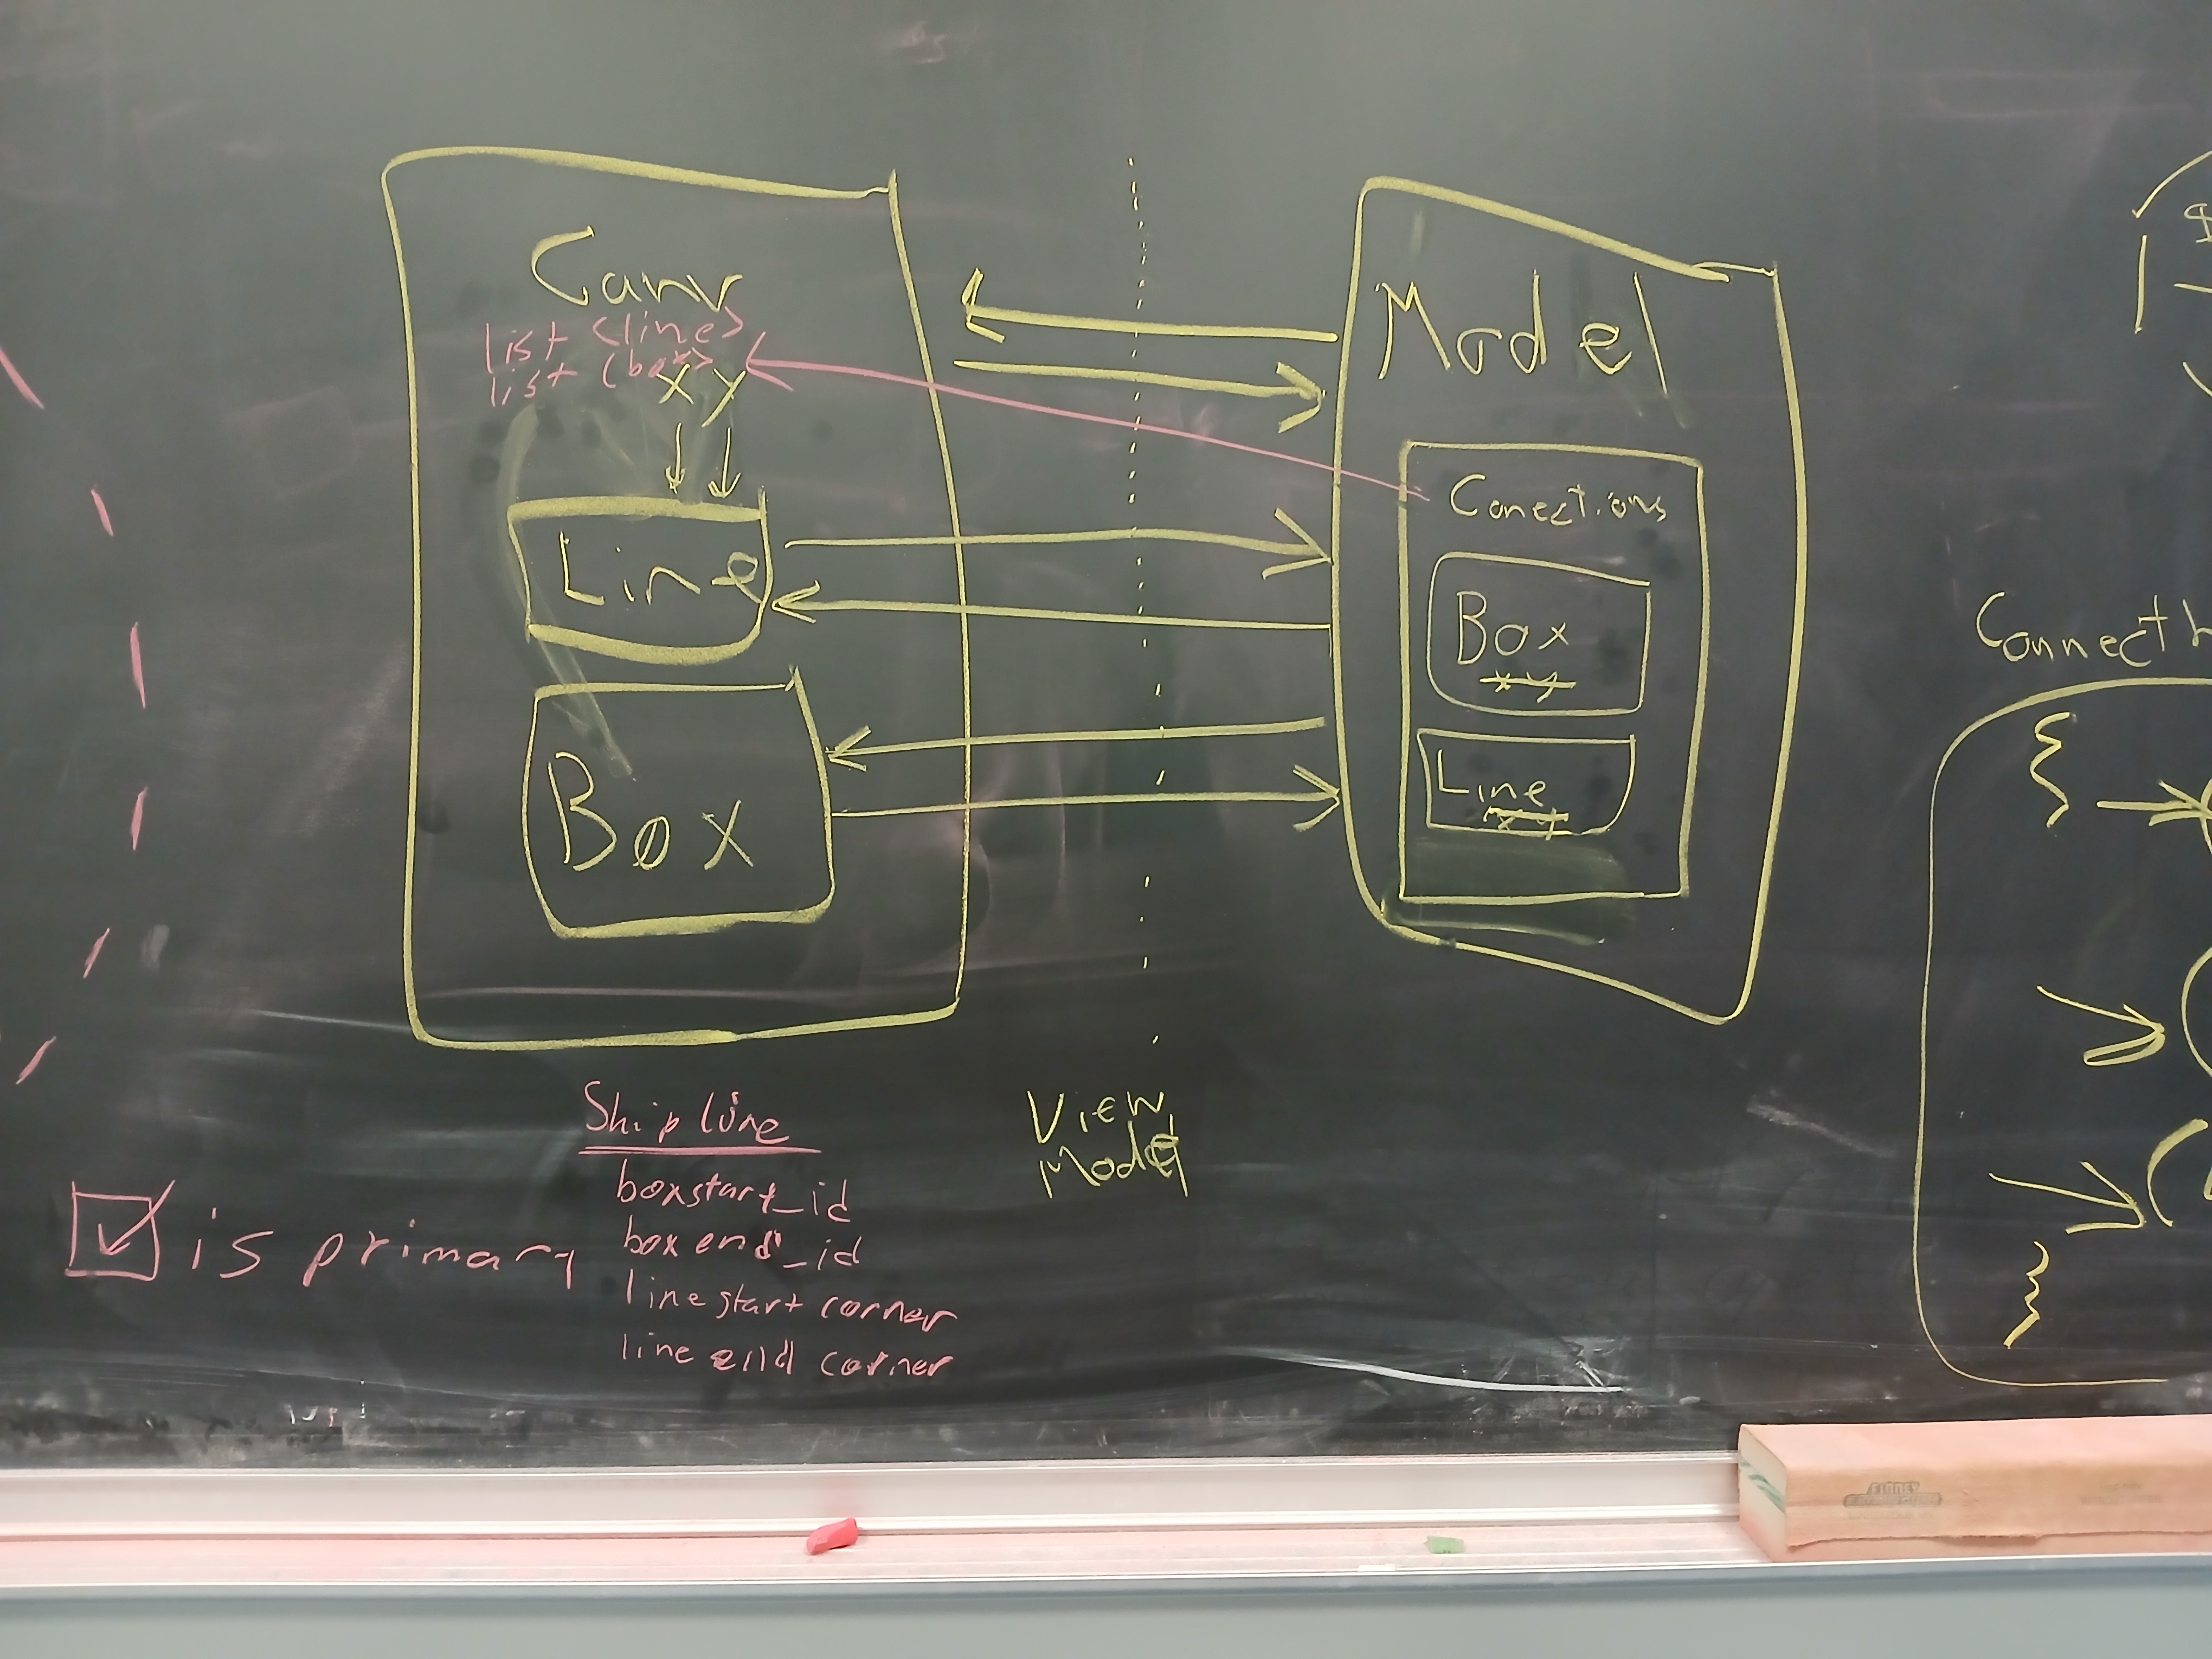 Canv
list <line>
list <box>
x y
Line
Box
Model
Conections
Box
x y
Line
x y
View
Model
Ship line
boxstart_id
box end_id
line start corner
line end corner
is primary
Connect
{
}